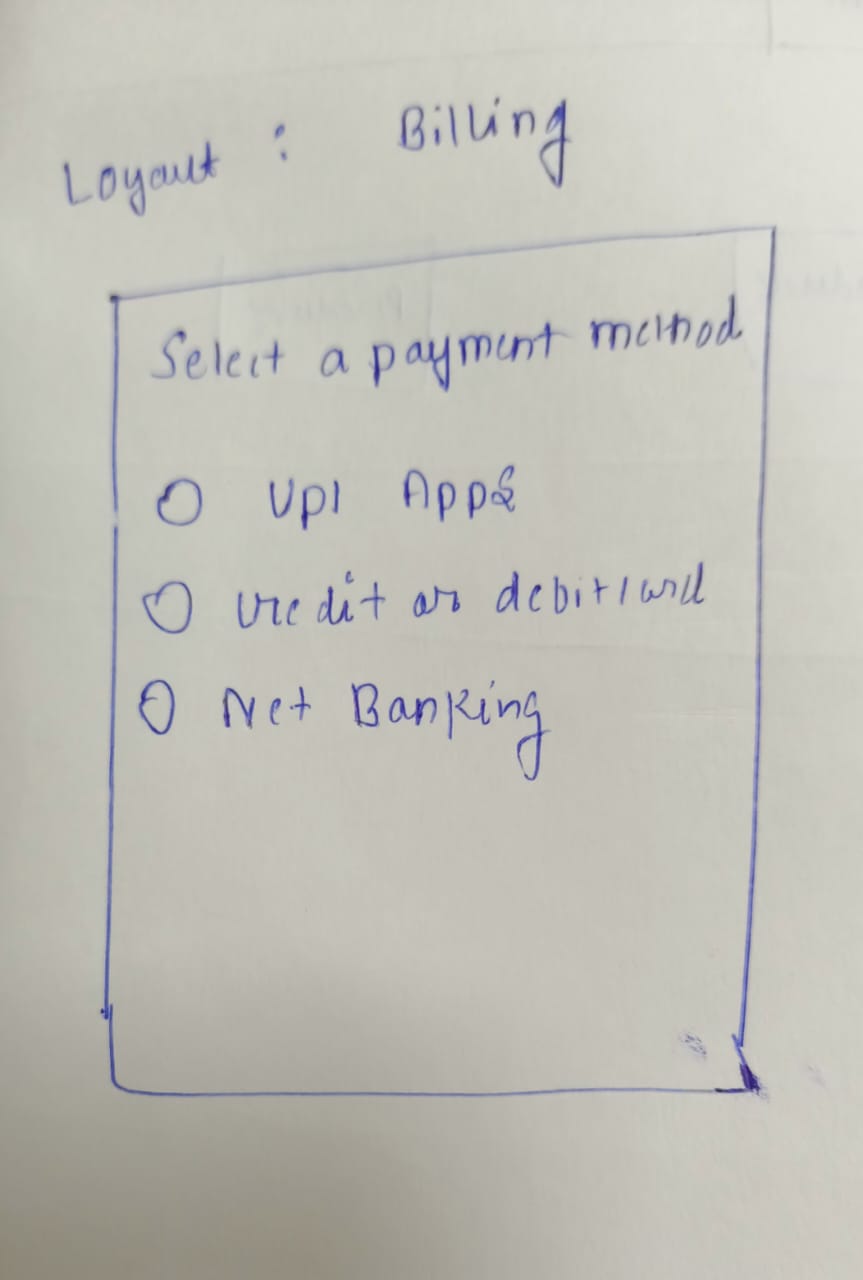 Loyault : Billing
Select a payment method
UPI Apps
Credit or debit card
Net Banking